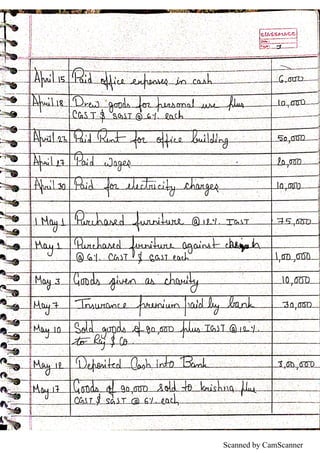 classmate
April 15 Paid office expenses in cash 6,000
April 18 Drew goods for personal use plus 10,000
CGST & SGST @ 6% each
April 23 Paid Rent for office building 50,000
April 27 Paid wages 20,000
April 30 Paid for electricity charges 10,000
May 1 Purchased furniture @ 12% IGST 75,000
May 1 Purchased furniture against
@ 6% CGST & SGST each 1,00,000
May 3 Goods given as charity 10,000
May 7 Insurance premium paid by bank 30,000
May 10 Sold goods of 80,000 plus IGST @ 12%
to Raj & Co.
May 12 Deposited Cash into Bank 3,00,000
May 17 Goods of 90,000 sold to krishna plus
CGST & SGST @ 6% each
Scanned by CamScanner